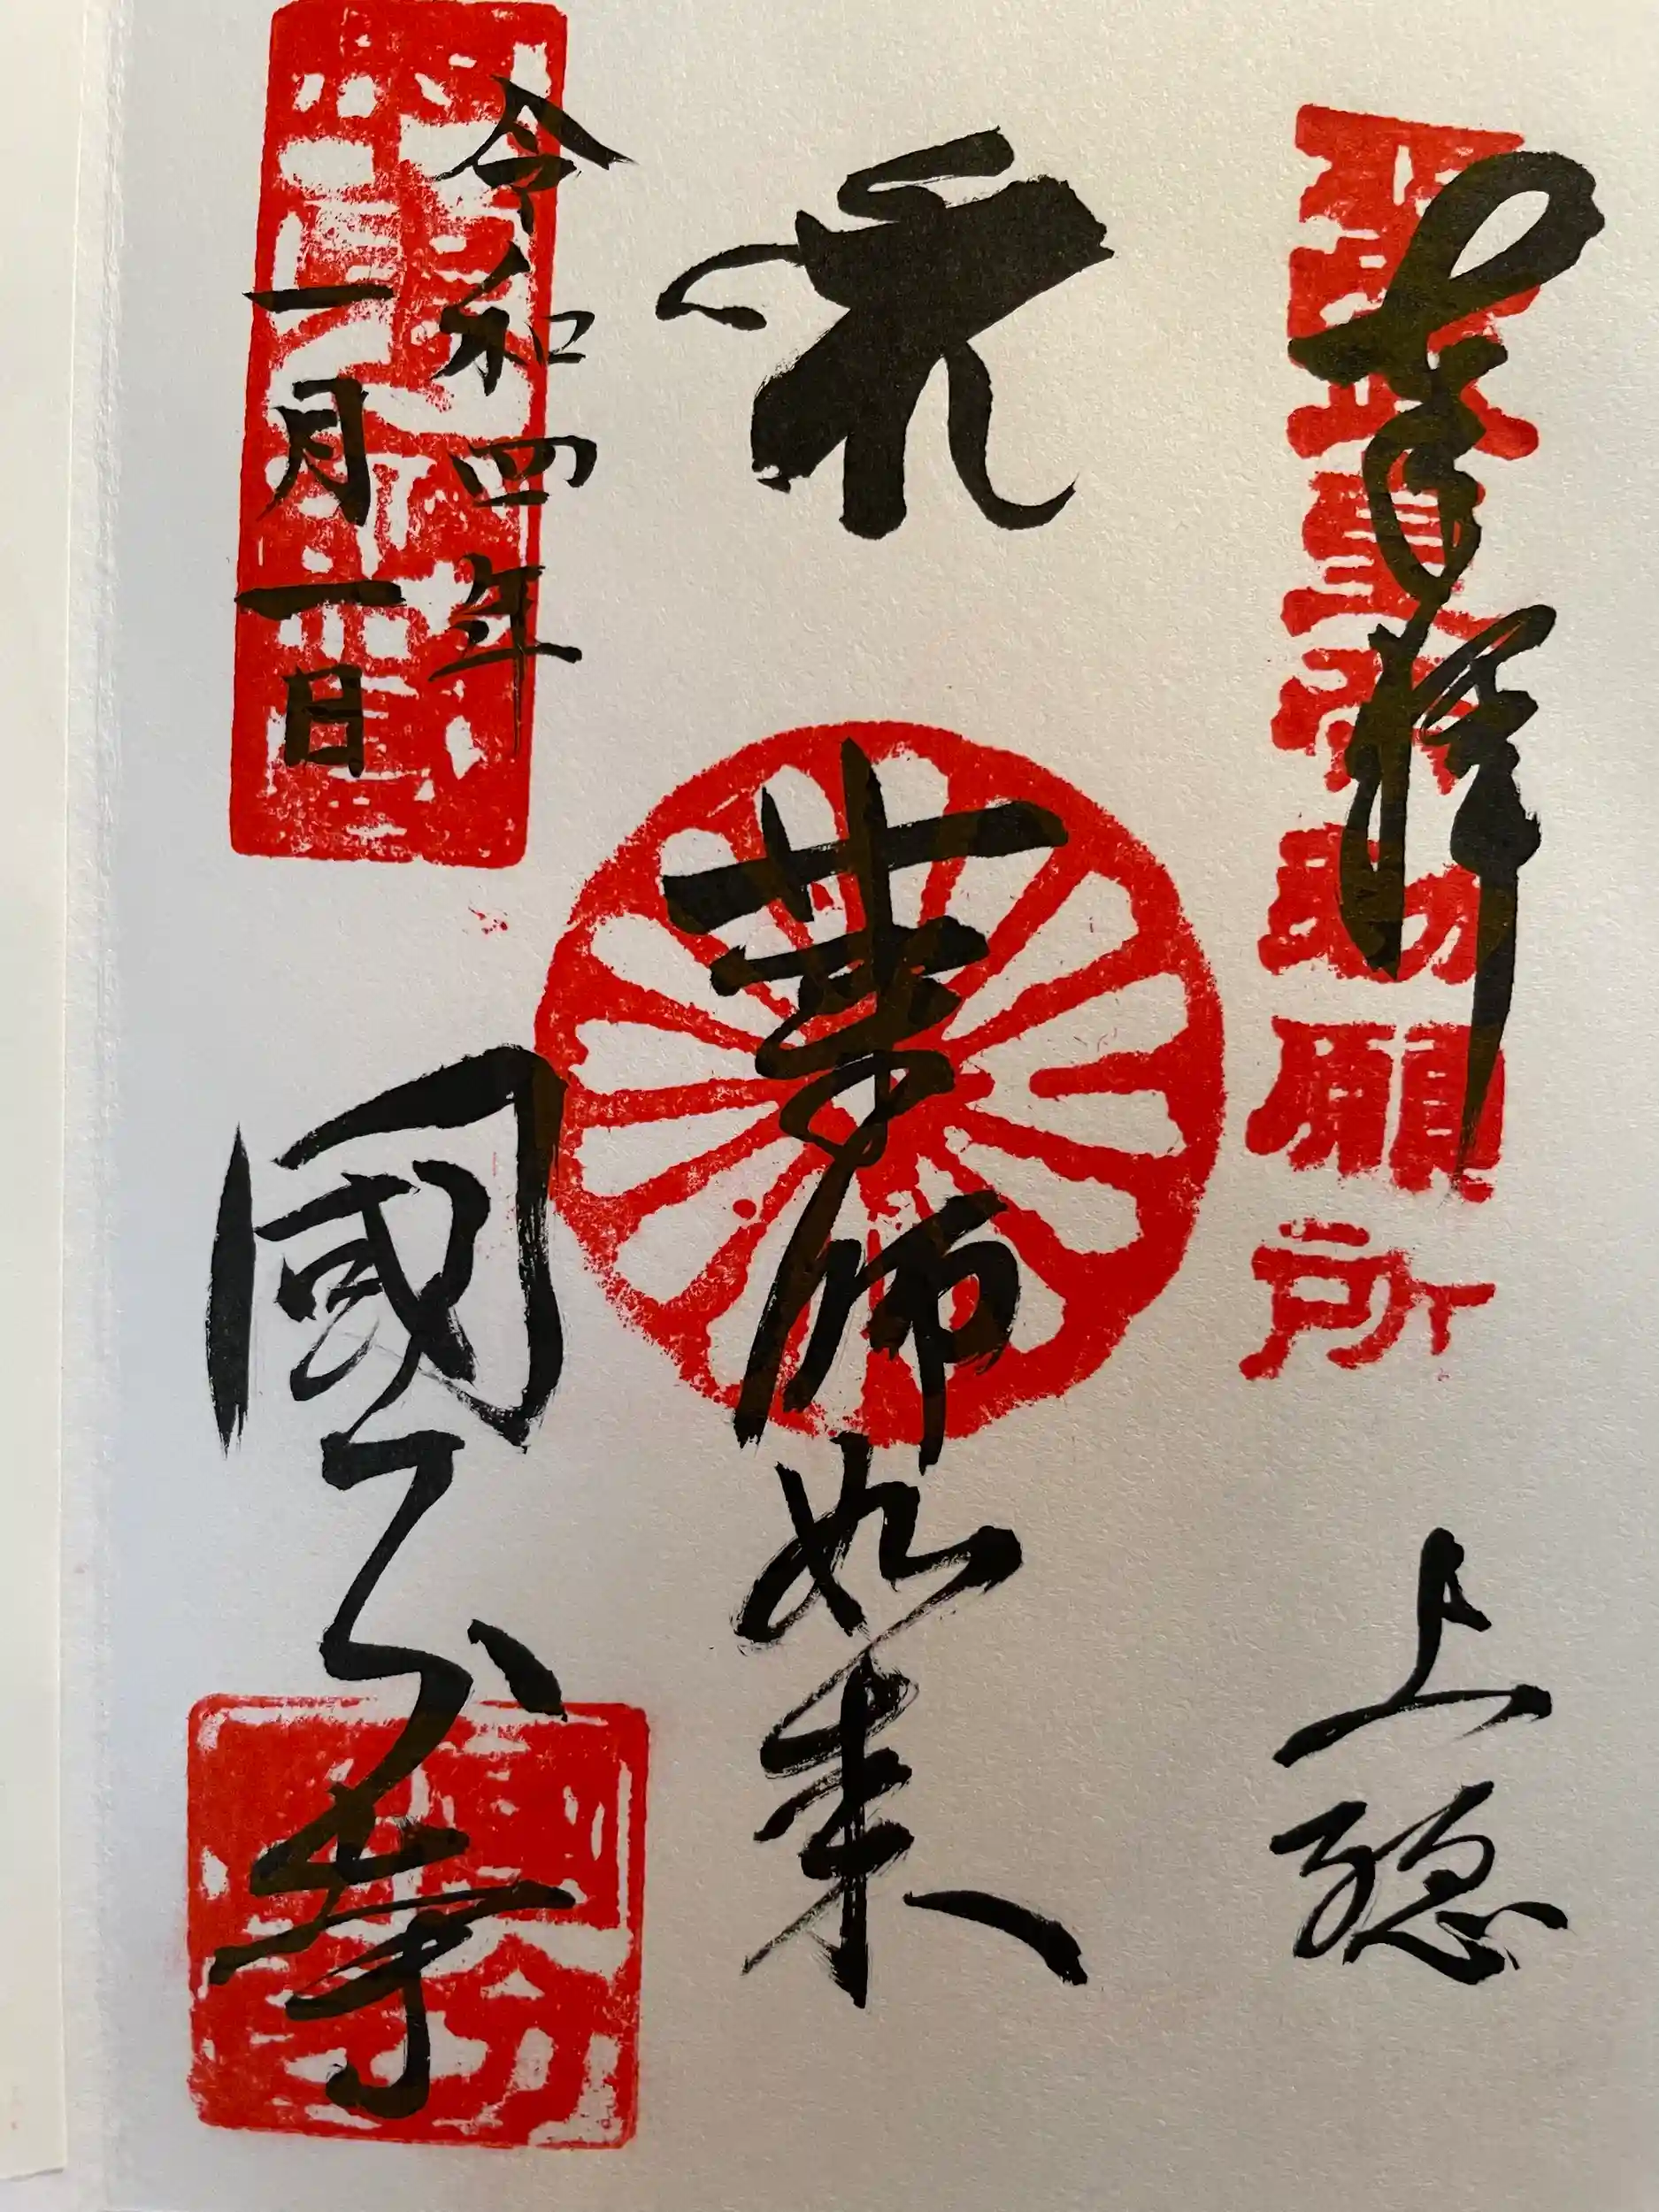 奉拝
聖武天皇勅願所
上総
薬師如来
令和四年
一月一日
國分寺